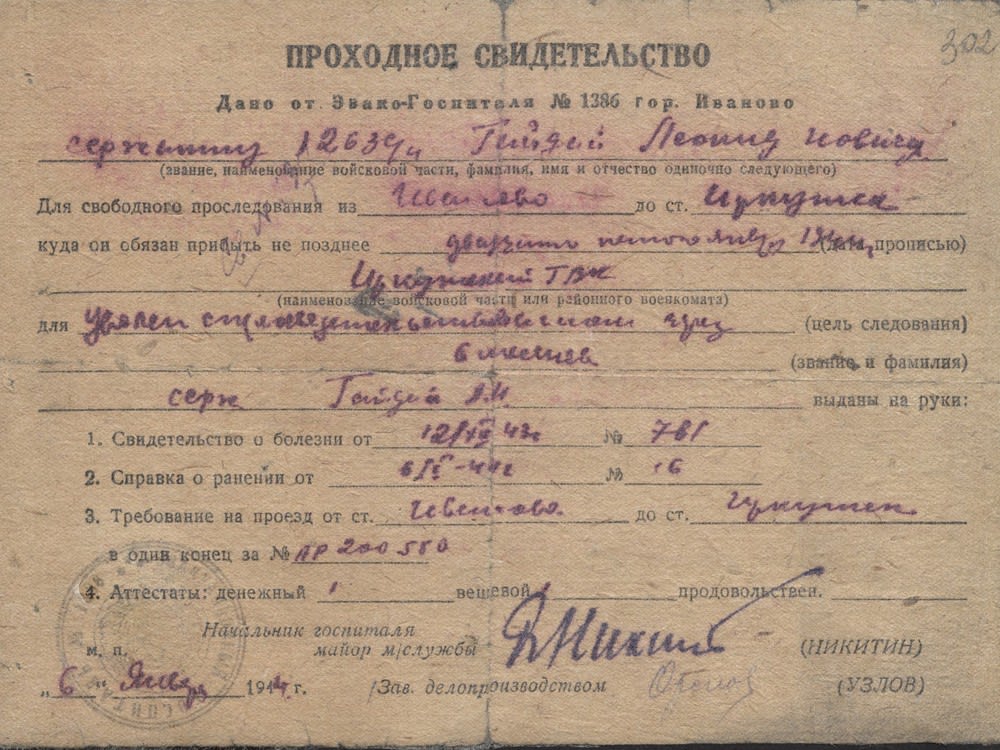 302
ПРОХОДНОЕ СВИДЕТЕЛЬСТВО
Дано от Эвако-Госпиталя № 1386 гор. Иваново
сержанту Гайдай Леонид Иович
(звание, наименование войсковой части, фамилия, имя и отчество одиночно следующего)
Для свободного проследования из Иваново до ст. Иркутск
куда он обязан прибыть не позднее двадцать пятого (дата прописью)
Иркутский ГВК
(наименование войсковой части или районного военкомата)
для (цель следования)
6 месяцев (звание и фамилия)
серж Гайдай выданы на руки:
1. Свидетельство о болезни от 12/XII 43г № 781
2. Справка о ранении от 6/I-44г № 16
3. Требование на проезд от ст. Иваново до ст. Иркутск
в один конец за № АР 200580
4. Аттестаты: денежный 1 вещевой 1 продовольствен.
Начальник госпиталя
м. п. майор м/службы (НИКИТИН)
„6“ Января 1944 г. Зав. делопроизводством (УЗЛОВ)